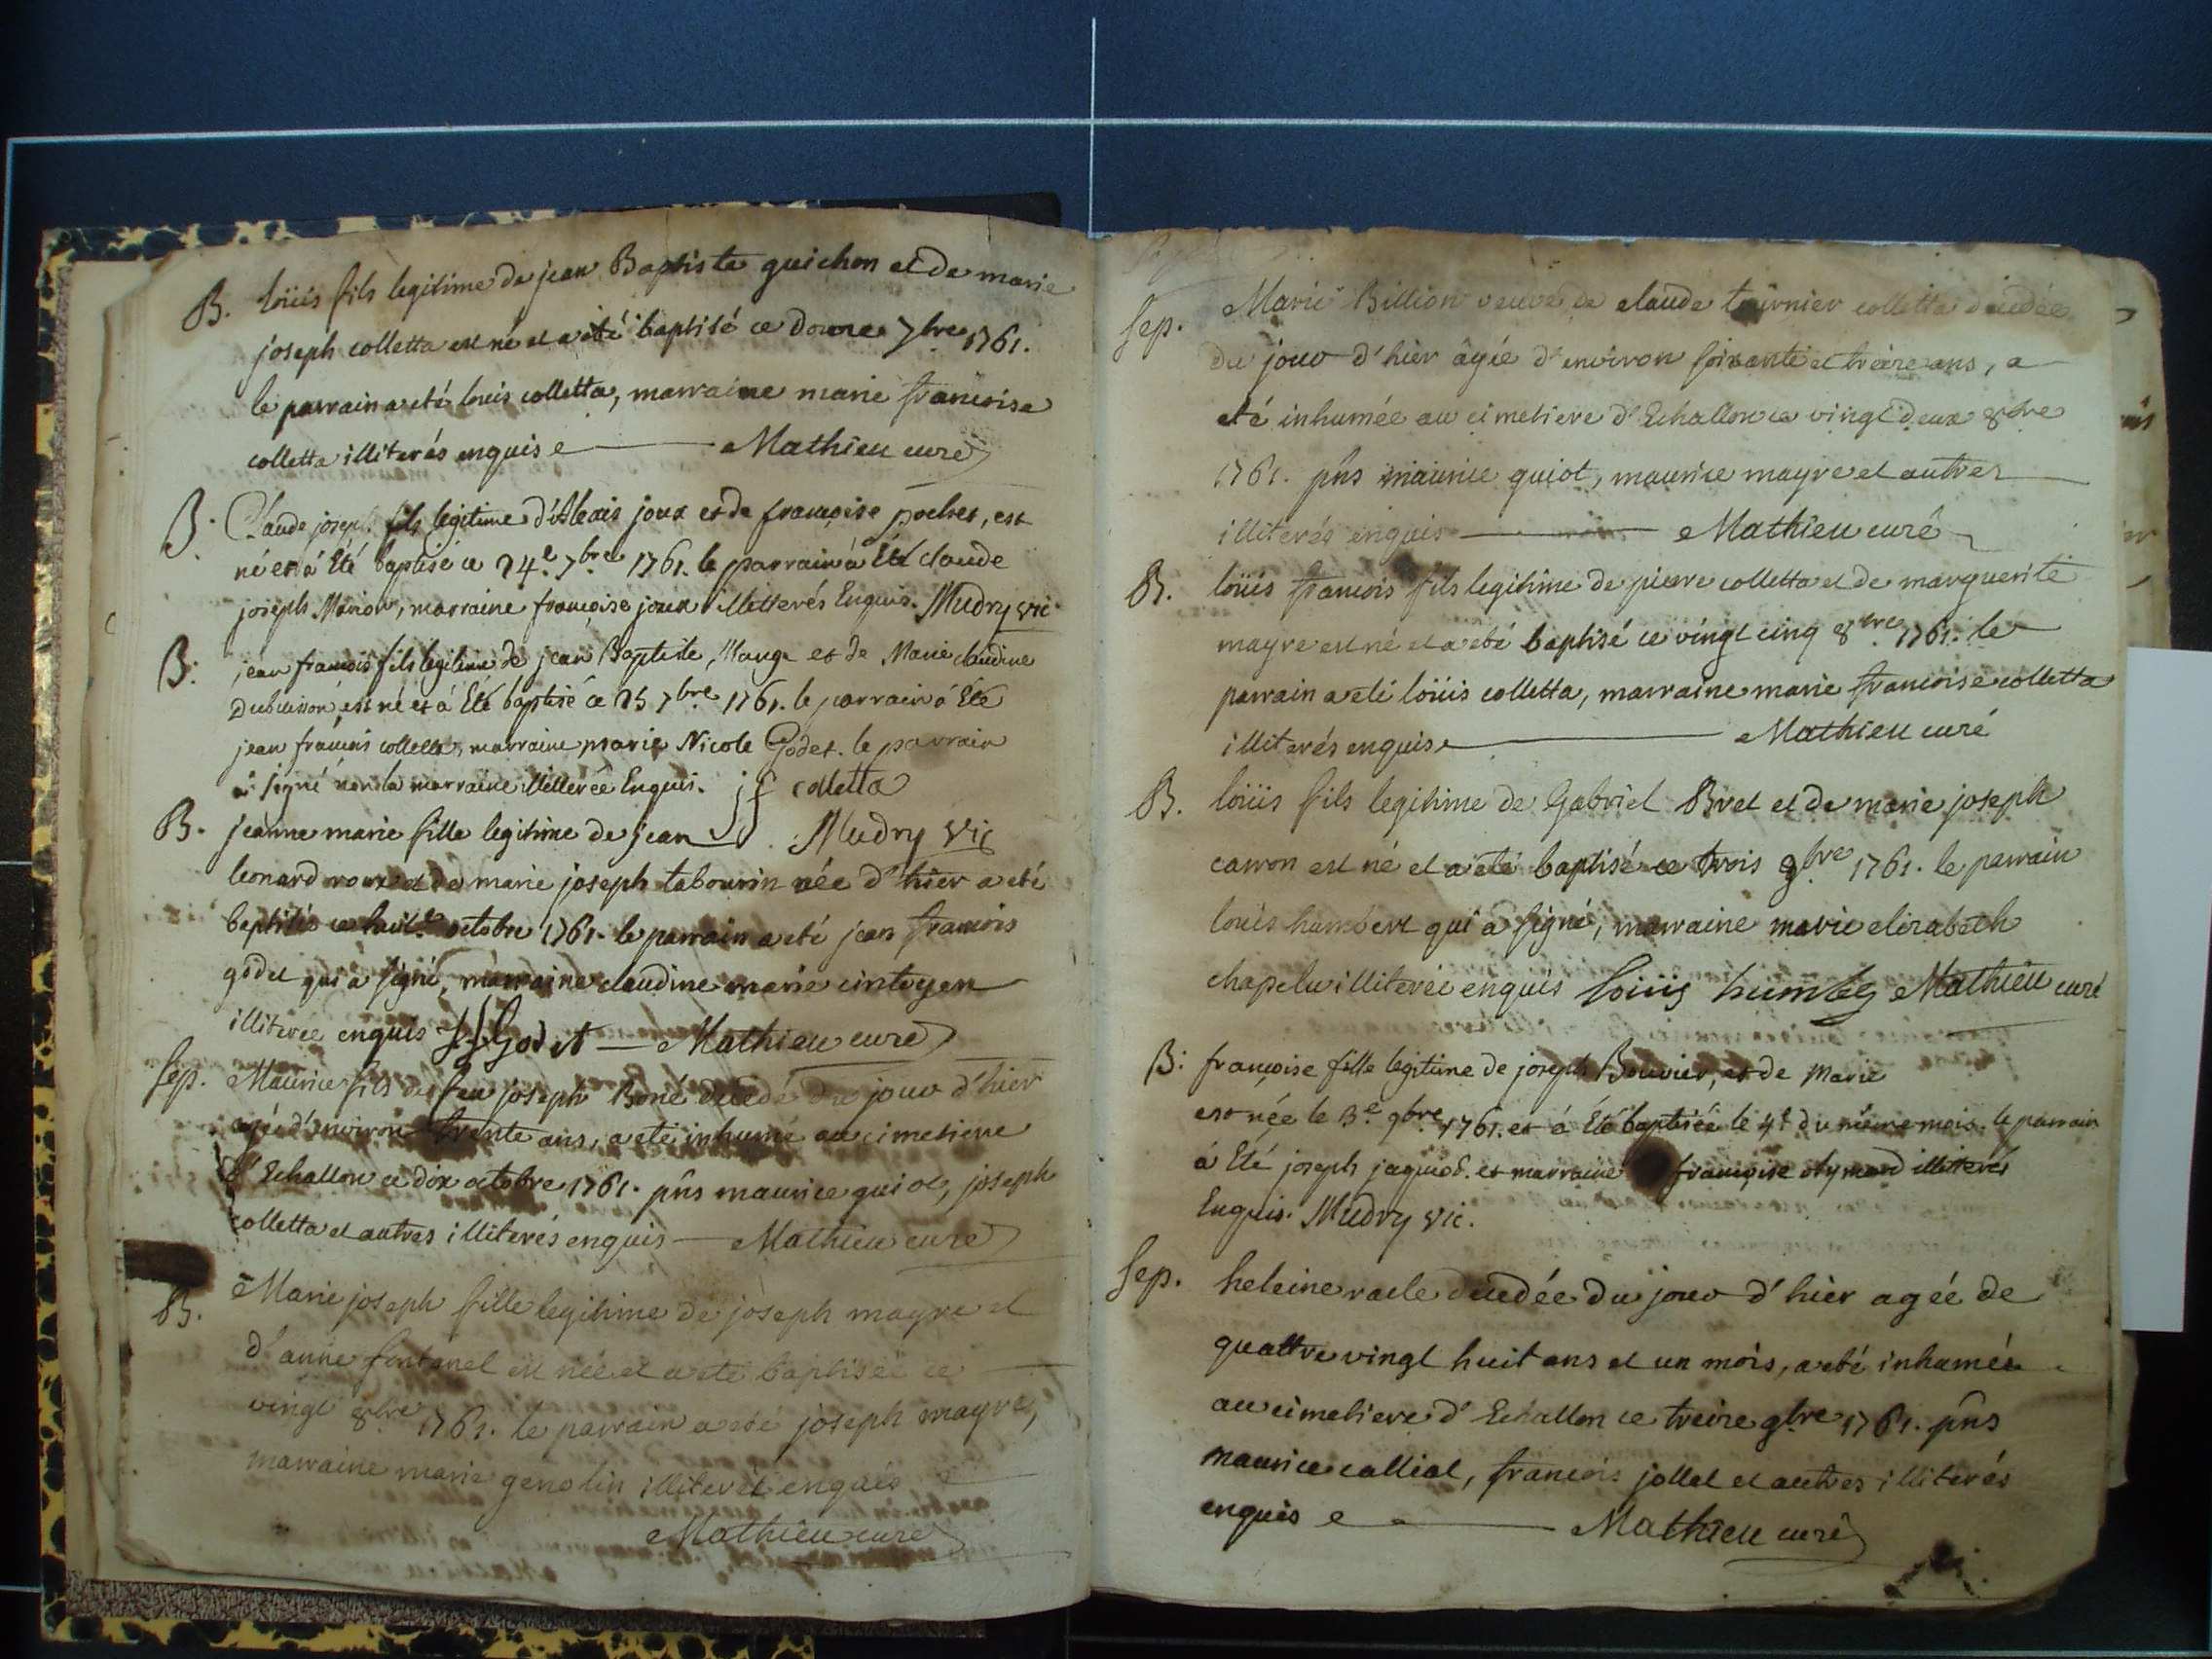 B. loüis fils legitime de jean Baptiste guichon et de marie
joseph colletta est né et a eté baptisé ce douze 7bre 1761.
le parrain a eté louis colletta, marraine marie francoise
colletta illiterés enquis Mathieu curé
B. Claude joseph fils legitime d'Alexis joux et de françoise pochet, est
né et à Eté baptisé ce 24e 7bre 1761. le parrain à Eté claude
joseph marraine françoise joux illitterés Enquis. Mudry vic
B. jean françois fils legitime de jean Baptiste Mange et de Marie claudine
Dubuisson, est né et à Eté baptisé ce 25 7bre 1761. le parrain à Eté
jean françois colletta, marraine marie Nicole Godet. le parrain
à signé non la marraine illitterée Enquis. jf colletta
B. jeanne marie fille legitime de jean Mudry Vic
leonard roux et de marie joseph tabourin née d'hier a eté
baptisée ce huit octobre 1761. le parrain a eté jean francois
godet qui a signé, marraine claudine marie cintoyen
illiterée enquis Godet Mathieu curé
sep. Maurice fils de feu joseph Boné decedé du jour d'hier
agé d'environ trente ans, a eté inhumé au cimetiere
d'Echallon ce dix octobre 1761. pñs maurice guiot, joseph
colletta et autres illiterés enquis Mathieu curé
B. Marie joseph fille legitime de joseph mayre et
d'anne fontanel est née et a eté baptisée ce
vingt 8bre 1761. le parrain a eté joseph mayre,
marraine marie genolin illiterés enquis
Mathieu curé
sep. Marie Billion veuve de claude tournier colletta decedée
du jour d'hier âgée d'environ soixante et treize ans, a
eté inhumée au cimetiere d'Echallon ce vingt deux 8bre
1761. pñs maurice guiot, maurice mayre et autres
illiterés enquis Mathieu curé
B. loüis francois fils legitime de pierre colletta et de marguerite
mayre est né et a eté baptisé ce vingt cinq 8bre 1761. le
parrain a eté loüis colletta, marraine marie francoise colletta
illiterés enquis Mathieu curé
B. loüis fils legitime de Gabriel Bret et de marie joseph
carron est né et a eté baptisé ce trois 9bre 1761. le parrain
loüis humbert qui a signé, marraine marie elizabeth
chapelu illiterée enquis loüis humbert Mathieu curé
B. françoise fille legitime de joseph Bouvier, et de Marie
est née le 3e 9bre 1761. et à Eté baptisée le 4e du même mois. le parrain
à Eté joseph jaquod. et marraine françoise illitterés
Enquis. Mudry vic.
sep. heleine racle decedée du jour d'hier agée de
quattre vingt huit ans et un mois, a eté inhumée
au cimetiere d'Echallon ce treize 9bre 1761. pñs
maurice calliat, francois jollet et autres illiterés
enquis Mathieu curé